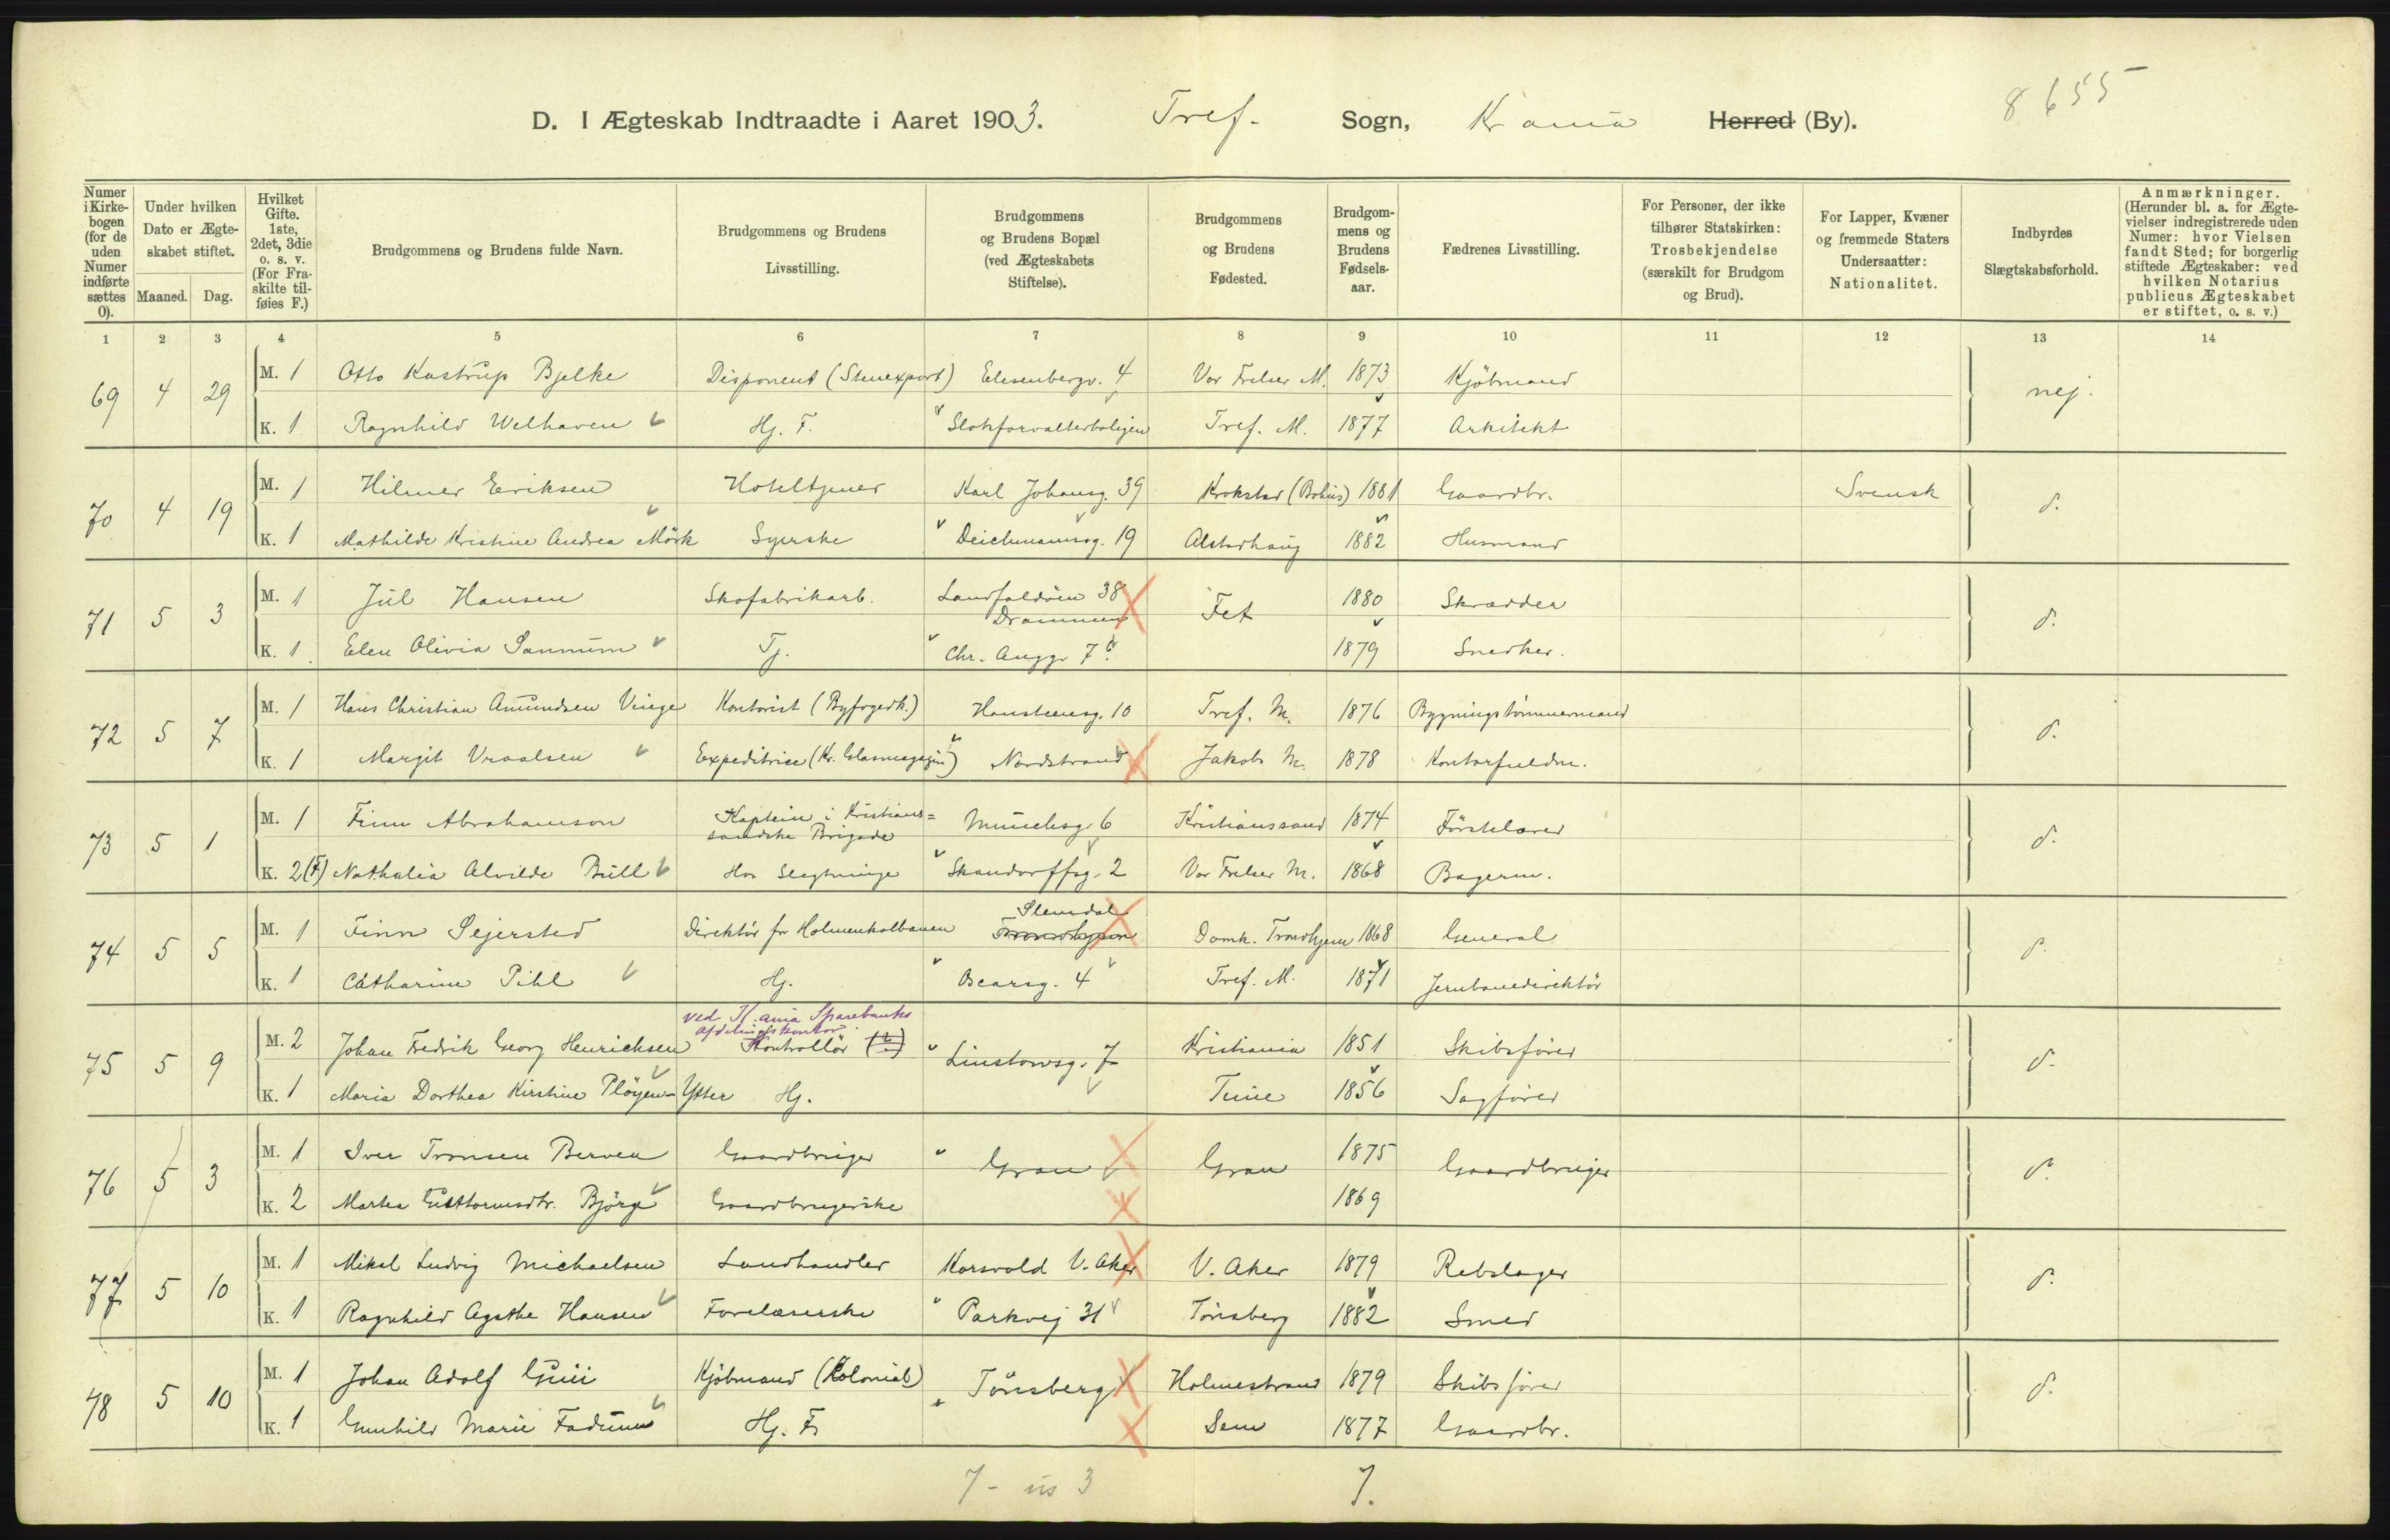 8655
D. I Ægteskab Indtraadte i Aaret 1903. Tref. Sogn, Krania Herred (By).
Numer i Kirkebogen (for de uden Numer indførte sættes 0).
Under hvilken Dato er Ægteskabet stiftet.
Maaned. Dag.
Hvilket Gifte. 1ste, 2det, 3die o. s. v. (For Fraskilte tilføies F.)
Brudgommens og Brudens fulde Navn.
Brudgommens og Brudens Livsstilling.
Brudgommens og Brudens Bopæl (ved Ægteskabets Stiftelse).
Brudgommens og Brudens Fødested.
Brudgommens og Brudens Fødselsaar.
Fædrenes Livsstilling.
For Personer, der ikke tilhører Statskirken: Trosbekjendelse (særskilt for Brudgom og Brud).
For Lapper, Kvæner og fremmede Staters Undersaatter: Nationalitet.
Indbyrdes Slægtskabsforhold.
Anmærkninger. (Herunder bl. a. for Ægtevielser indregistrerede uden Numer: hvor Vielsen fandt Sted; for borgerlig stiftede Ægteskaber: ved hvilken Notarius publicus Ægteskabet er stiftet, o. s. v.)
1 2 3 4 5 6 7 8 9 10 11 12 13 14
69 4 29 M. 1 Otto Kastrup Bjelke Disponent (Stenexport) Elesenbergv. 4 Vor Frelser M. 1873 Kjöbmand nej.
K. 1 Ragnhild Welhaven Hj. F. Slotsforvalterboligen Tref. M. 1877 Arkitekt
70 4 19 M. 1 Hilmer Eriksen Hoteltjener Karl Johansg. 39 Krokstad (Bohus) 1881 Gaardbr. Svensk d.
K. 1 Mathilde Kristine Andrea Mörk Syerske Deichmannsg. 19 Alstadhaug 1882 Husmand
71 5 3 M. 1 Jul Hansen Skofabrikarb. Landfaldöen 38 Drammen Fet 1880 Skrædder d.
K. 1 Elen Olivia Sannum Tj. Chr. Auggt 7c 1879 Snedker.
72 5 7 M. 1 Hans Christian Amundsen Vinge Kontorist (Byfogedk.) Hansteensg. 10 Tref. M. 1876 Bygningstömmermand d.
K. 1 Margit Vraalsen Expeditrice (Kr. Glasmagazin) Nordstrand Jakobs M. 1878 Kontorfuldm.
73 5 1 M. 1 Finn Abrahamson Kaptein i Kristianssandske Brigade Munchsg. 6 Kristianssand 1874 Förstelærer d.
K. 2 (F) Nathalia Alvilde Bull Hos Slegtninge Skandorffsg. 2 Vor Frelser M. 1868 Bagerm.
74 5 5 M. 1 Finn Sejersted Direktör for Holmenkolbanen Slemdal Domk. Trondhjem 1868 General d.
K. 1 Catharine Pihl Hj. Oscarsg. 4 Tref. M. 1871 Jernbanedirektör
ved K.ania Sparebanks Afdelingskontor.
75 5 9 M. 2 Johan Fredrik Georg Henrichsen Kontrollör Linstowsg. 7 Kristiania 1851 Skibsförer d.
K. 1 Maria Dorthea Kirstine Plöyen-Ytter Hj. Tune 1856 Sagförer
76 5 3 M. 1 Iver Tronsen Berven Gaardbruger Gran Gran 1875 Gaardbruger d.
K. 2 Marthea Guttormsdtr. Björge Gaardbrugerske 1869
77 5 10 M. 1 Mikal Ludvig Michaelsen Landhandler Korsvold V. Aker V. Aker 1879 Rebslager d.
K. 1 Ragnhild Agathe Hansen Forelæserske Parkvej 31 Tönsberg 1882 Smed
78 5 10 M. 1 Johan Adolf Grui Kjöbmand (Kolonial) Tönsberg Holmestrand 1879 Skibsförer d.
K. 1 Gunhild Marie Fadum Hj. F. Sem 1877 Gaardbr.
7 - us 3 7.